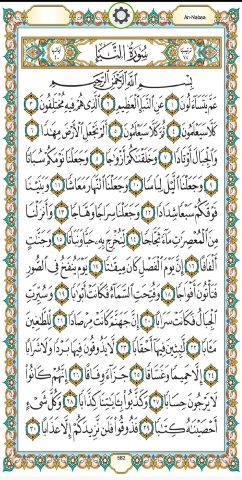 An-Nabaa
سُورَةُ النَّبَإِ
بِسْمِ اللَّهِ الرَّحْمَٰنِ الرَّحِيمِ
عَمَّ يَتَسَاءَلُونَ ١ عَنِ النَّبَإِ الْعَظِيمِ ٢ الَّذِي هُمْ فِيهِ مُخْتَلِفُونَ ٣
كَلَّا سَيَعْلَمُونَ ٤ ثُمَّ كَلَّا سَيَعْلَمُونَ ٥ أَلَمْ نَجْعَلِ الْأَرْضَ مِهَادًا ٦
وَالْجِبَالَ أَوْتَادًا ٧ وَخَلَقْنَاكُمْ أَزْوَاجًا ٨ وَجَعَلْنَا نَوْمَكُمْ سُبَاتًا
٩ وَجَعَلْنَا اللَّيْلَ لِبَاسًا ١٠ وَجَعَلْنَا النَّهَارَ مَعَاشًا ١١ وَبَنَيْنَا
فَوْقَكُمْ سَبْعًا شِدَادًا ١٢ وَجَعَلْنَا سِرَاجًا وَهَّاجًا ١٣ وَأَنزَلْنَا
مِنَ الْمُعْصِرَاتِ مَاءً ثَجَّاجًا ١٤ لِّنُخْرِجَ بِهِ حَبًّا وَنَبَاتًا ١٥ وَجَنَّاتٍ
أَلْفَافًا ١٦ إِنَّ يَوْمَ الْفَصْلِ كَانَ مِيقَاتًا ١٧ يَوْمَ يُنفَخُ فِي الصُّورِ
فَتَأْتُونَ أَفْوَاجًا ١٨ وَفُتِحَتِ السَّمَاءُ فَكَانَتْ أَبْوَابًا ١٩ وَسُيِّرَتِ
الْجِبَالُ فَكَانَتْ سَرَابًا ٢٠ إِنَّ جَهَنَّمَ كَانَتْ مِرْصَادًا ٢١ لِّلطَّاغِينَ
مَآبًا ٢٢ لَّابِثِينَ فِيهَا أَحْقَابًا ٢٣ لَّا يَذُوقُونَ فِيهَا بَرْدًا وَلَا شَرَابًا
٢٤ إِلَّا حَمِيمًا وَغَسَّاقًا ٢٥ جَزَاءً وِفَاقًا ٢٦ إِنَّهُمْ كَانُوا
لَا يَرْجُونَ حِسَابًا ٢٧ وَكَذَّبُوا بِآيَاتِنَا كِذَّابًا ٢٨ وَكُلَّ شَيْءٍ
أَحْصَيْنَاهُ كِتَابًا ٢٩ فَذُوقُوا فَلَن نَّزِيدَكُمْ إِلَّا عَذَابًا ٣٠
582